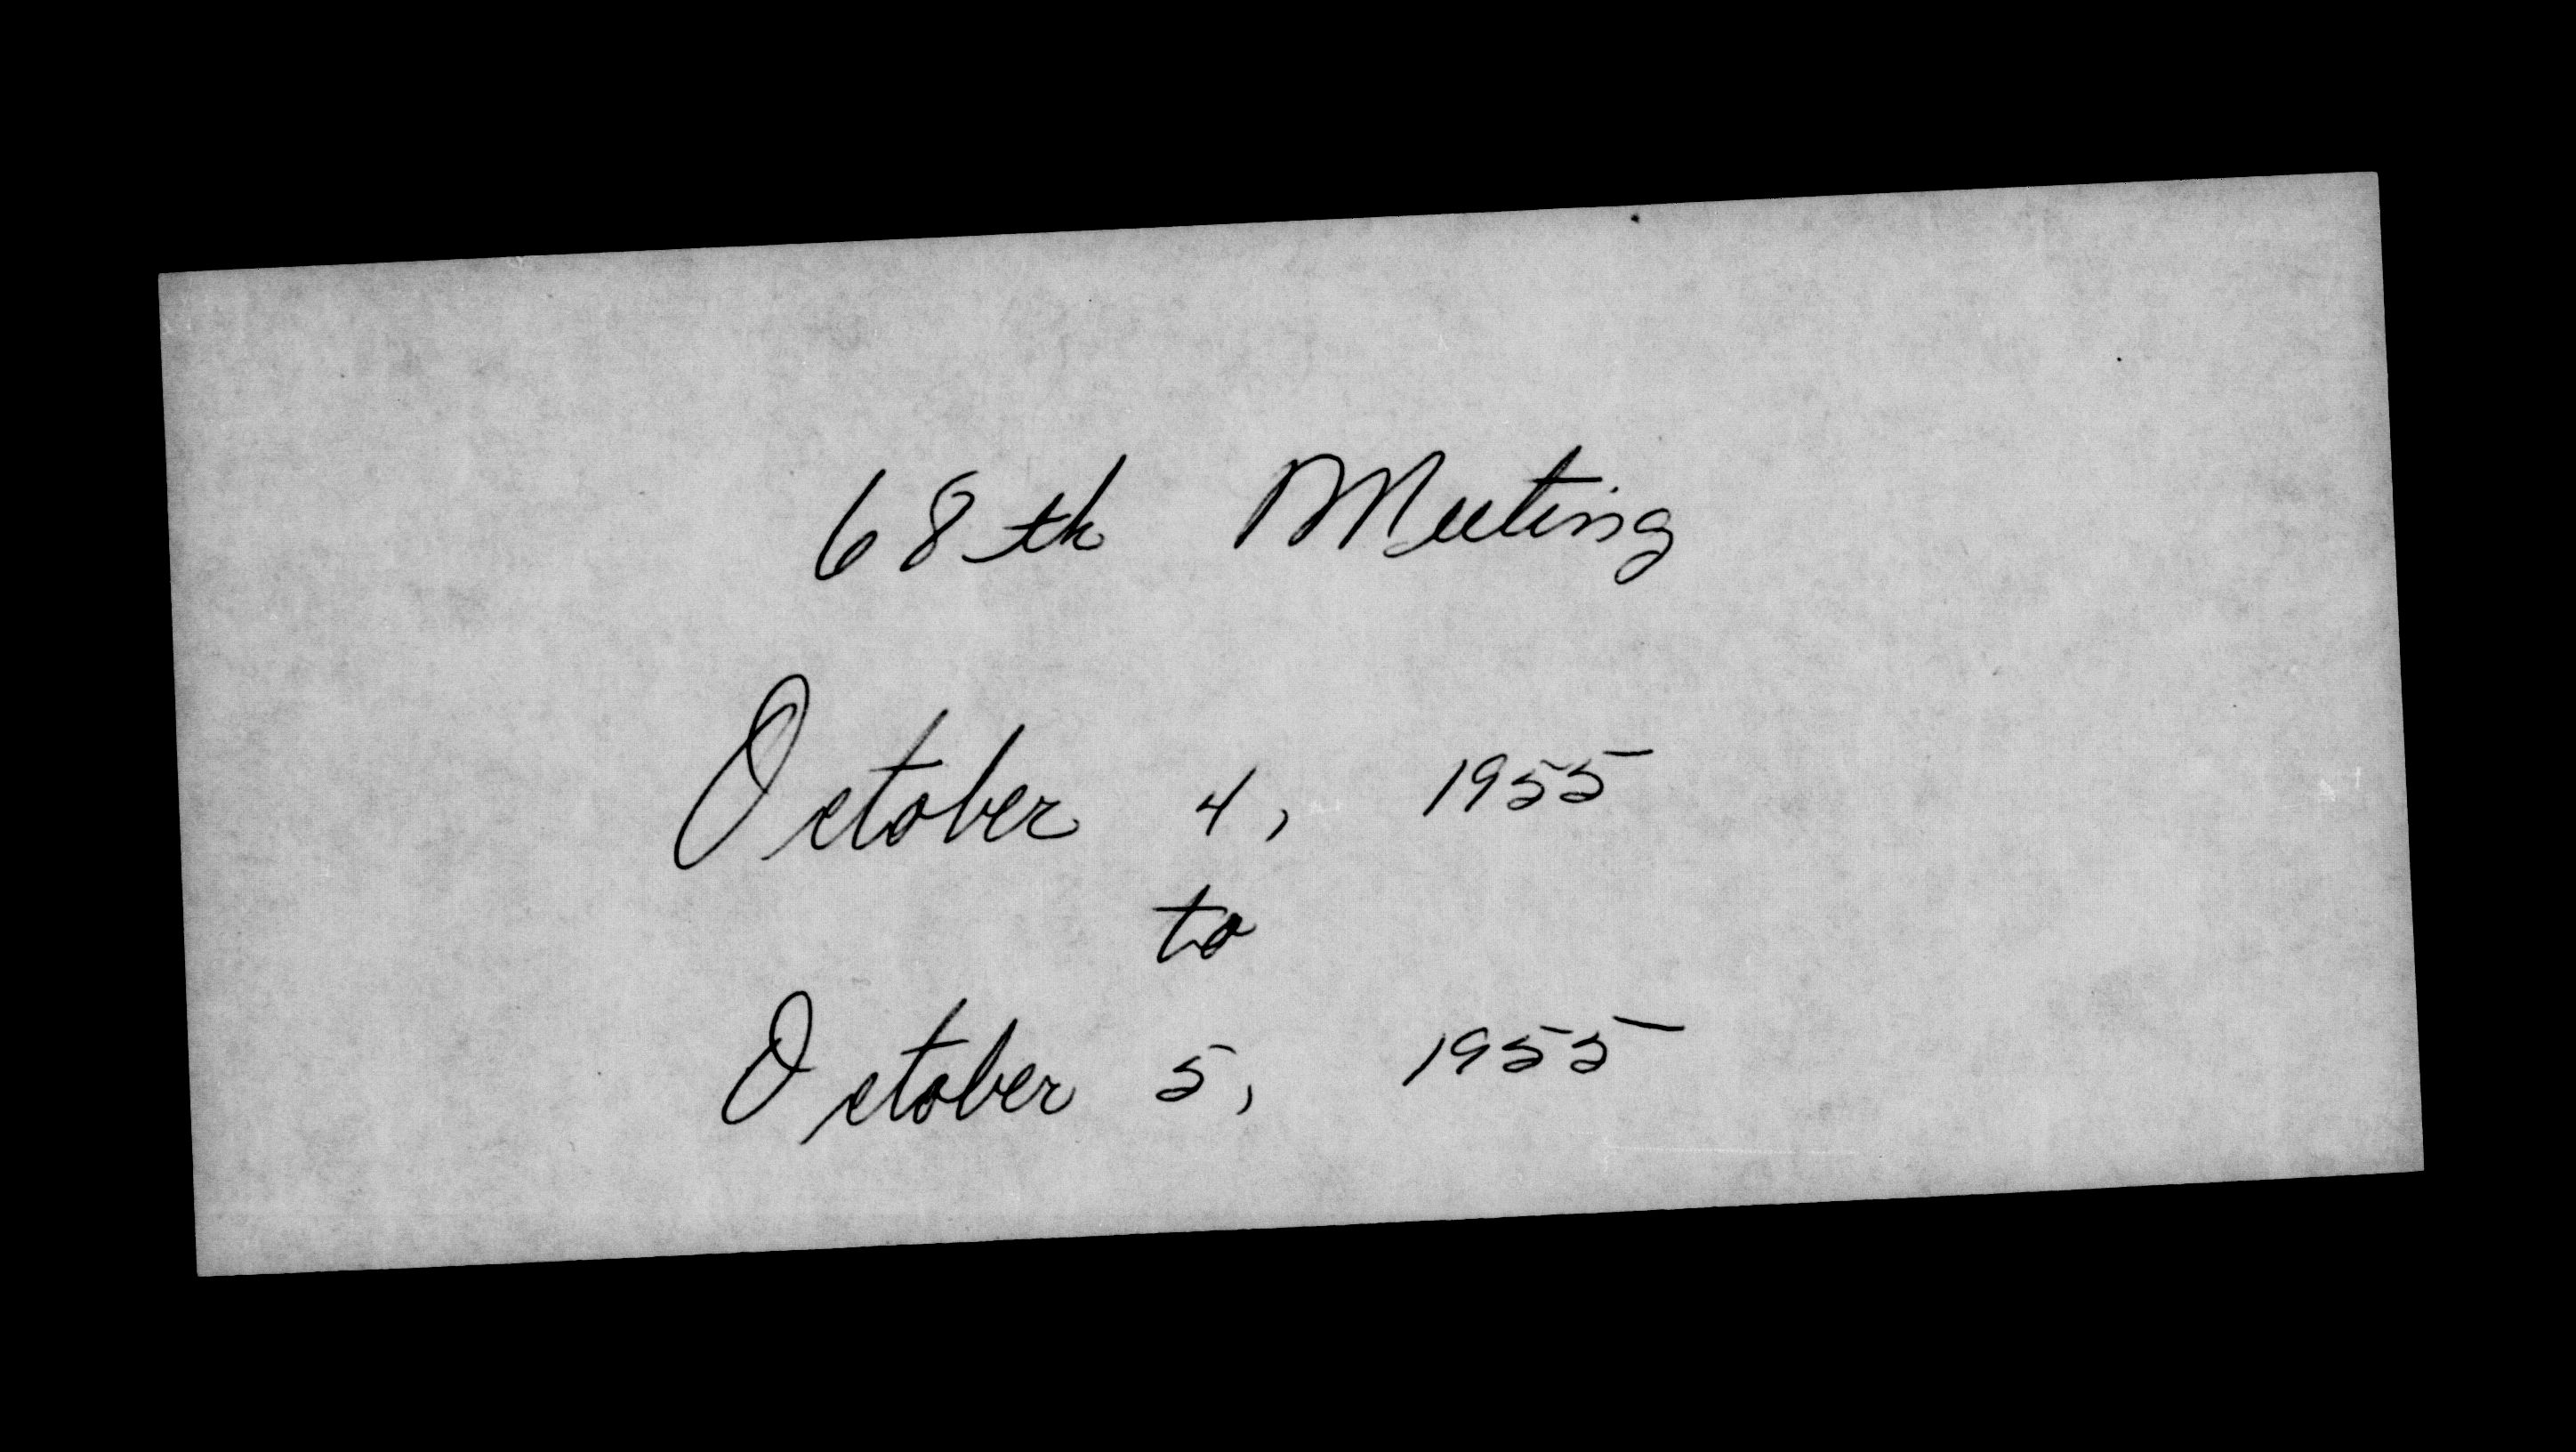 68th Meeting
October 4, 1955
to
October 5, 1955